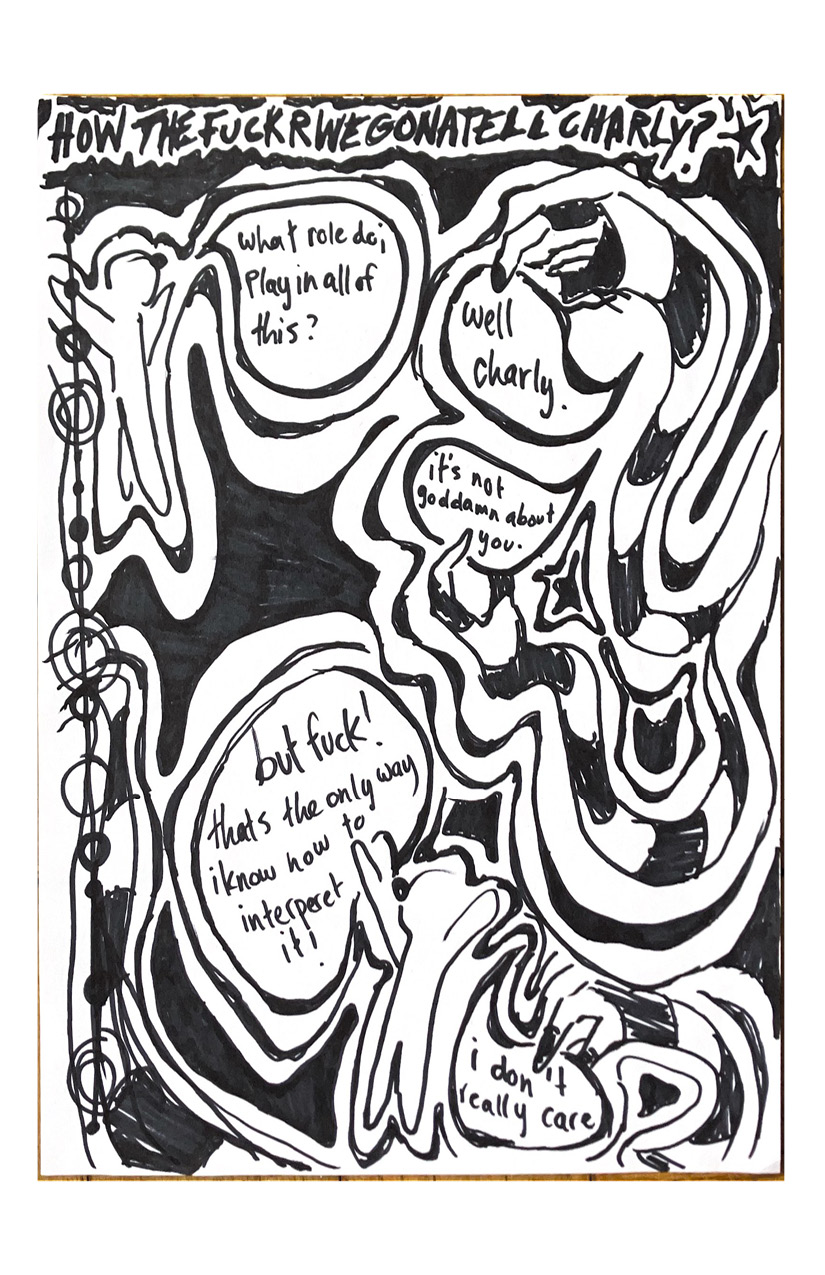 HOW THE FUCK R WE GONA TELL CHARLY?
what role do i
play in all of
this?
well
charly.
it's not
goddamn about
you.
but fuck!
thats the only way
i know how to
interperet
it!
i don't
really care